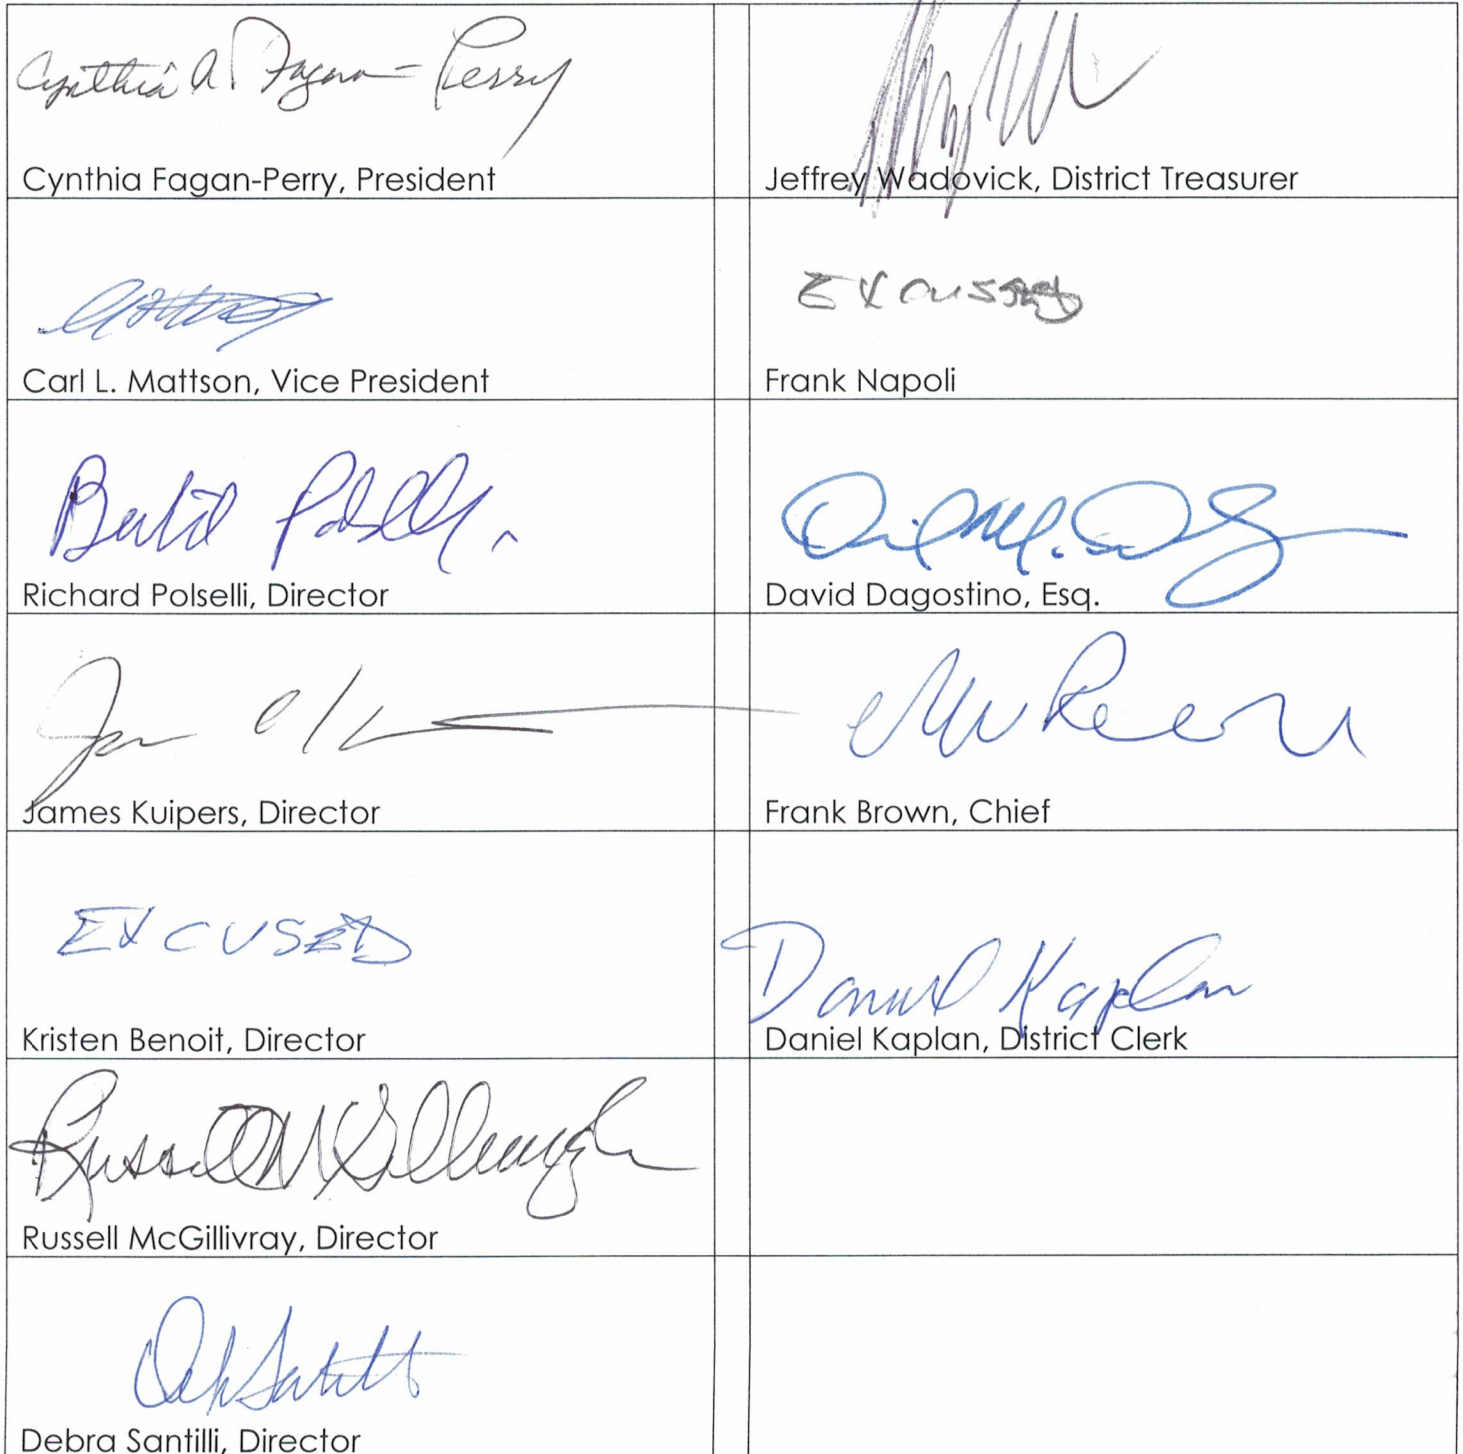 Cynthia A. Fagan-Perry
Cynthia Fagan-Perry, President
Jeffrey Wadovick, District Treasurer
Carl L. Mattson, Vice President
EXCUSED
Frank Napoli
Richard Polselli, Director
David Dagostino, Esq.
James Kuipers, Director
Frank Brown, Chief
EXCUSED
Kristen Benoit, Director
Daniel Kaplan
Daniel Kaplan, District Clerk
Russell McGillivray
Russell McGillivray, Director
Debra Santilli, Director